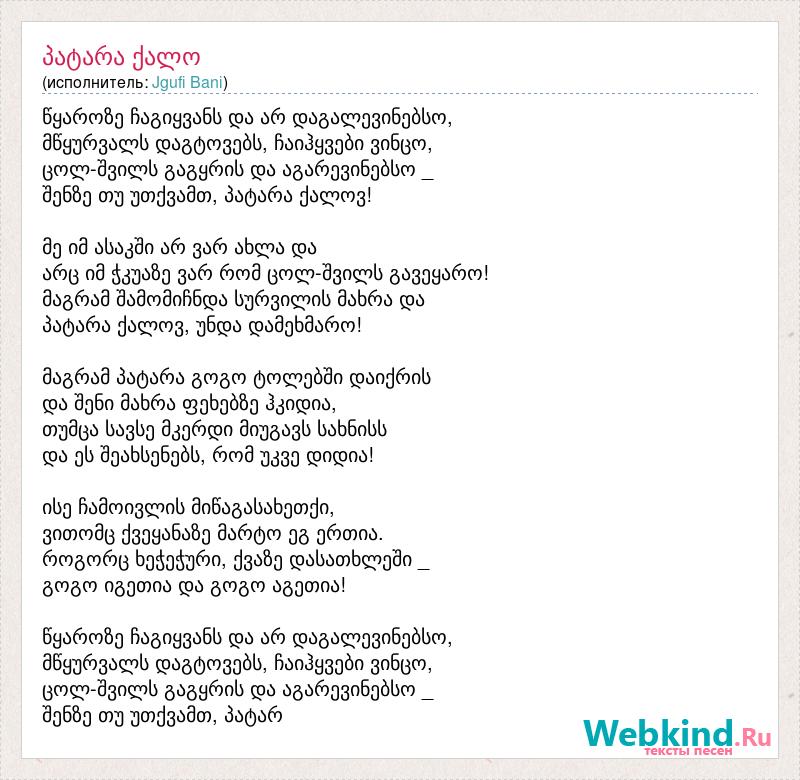 პატარა ქალო
(исполнитель: Jgufi Bani)
წყაროზე ჩაგიყვანს და არ დაგალევინებსო,
მწყურვალს დაგტოვებს, ჩაიჰყვები ვინცო,
ცოლ-შვილს გაგყრის და აგარევინებსო _
შენზე თუ უთქვამთ, პატარა ქალოვ!
მე იმ ასაკში არ ვარ ახლა და
არც იმ ჭკუაზე ვარ რომ ცოლ-შვილს გავეყარო!
მაგრამ შამომიჩნდა სურვილის მახრა და
პატარა ქალოვ, უნდა დამეხმარო!
მაგრამ პატარა გოგო ტოლებში დაიქრის
და შენი მახრა ფეხებზე ჰკიდია,
თუმცა სავსე მკერდი მიუგავს სახნისს
და ეს შეახსენებს, რომ უკვე დიდია!
ისე ჩამოივლის მიწაგასახეთქი,
ვითომც ქვეყანაზე მარტო ეგ ერთია.
როგორც ხეჭეჭური, ქვაზე დასათხლეში _
გოგო იგეთია და გოგო აგეთია!
წყაროზე ჩაგიყვანს და არ დაგალევინებსო,
მწყურვალს დაგტოვებს, ჩაიჰყვები ვინცო,
ცოლ-შვილს გაგყრის და აგარევინებსო _
შენზე თუ უთქვამთ, პატარ
Webkind.Ru
тексты песен